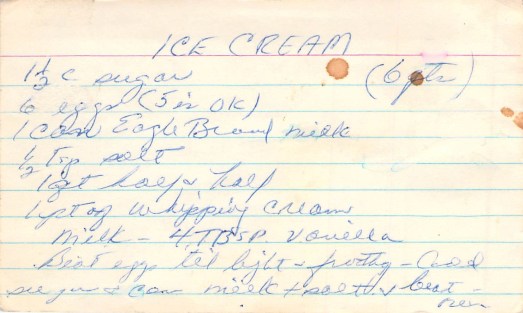 ICE CREAM
1 1/2 c sugar (6 qts)
6 eggs (5 is OK)
1 can Eagle Brand milk
1/2 Tsp salt
1 qt half & half
1 pt of whipping cream
milk - 4 TBSP. vanilla
Beat eggs til light & frothy - add
sugar & can milk + salt & beat -